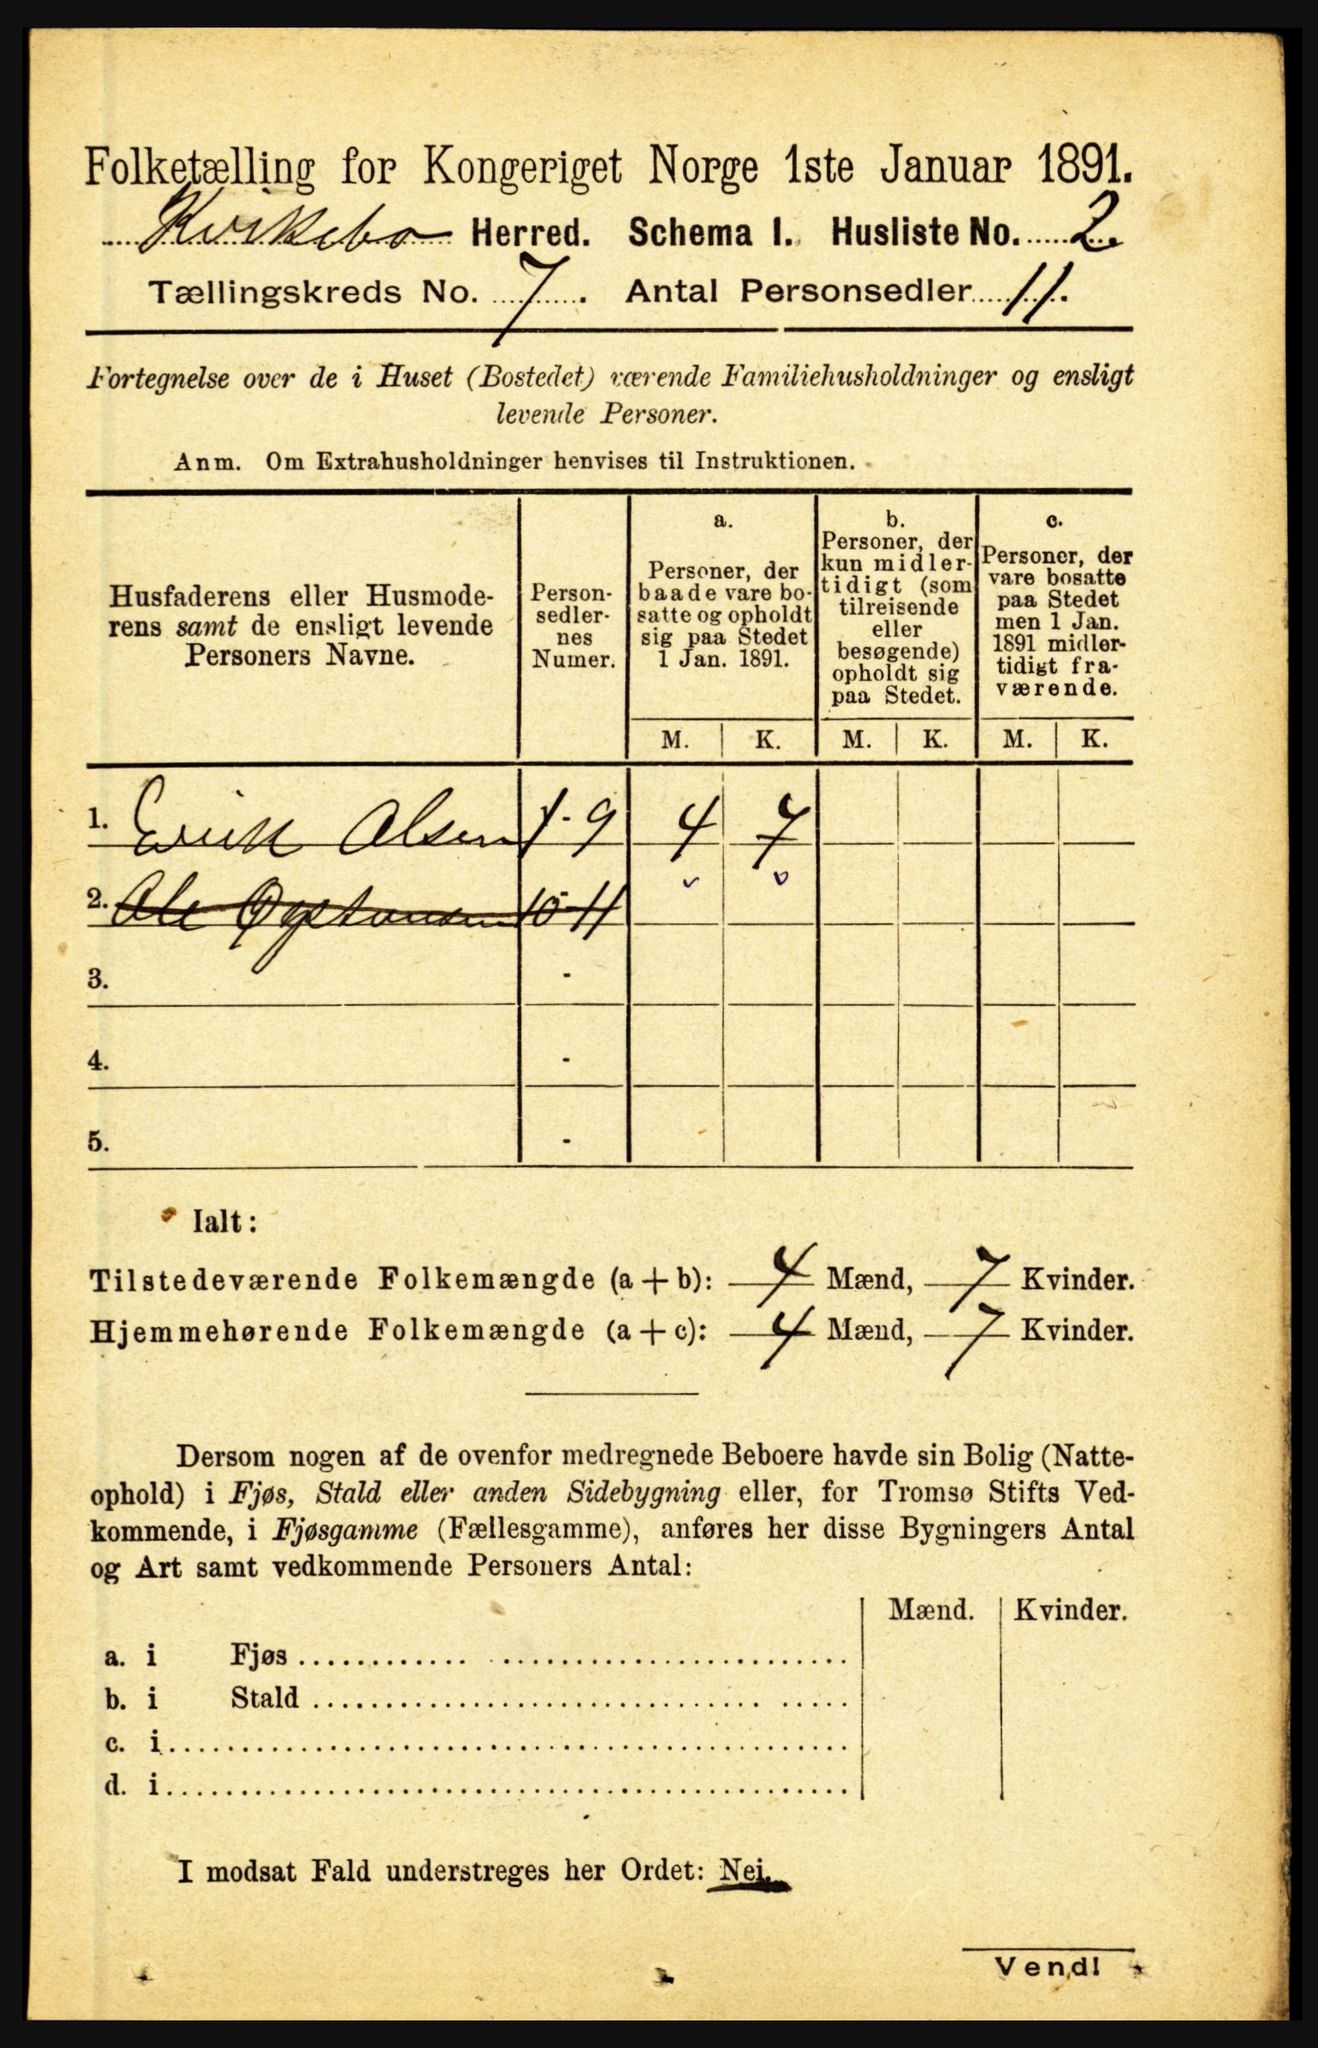 Folketælling for Kongeriget Norge 1ste Januar 1891.
Kirkebo Herred. Schema I. Husliste No. 2.
Tællingskreds No. 7. Antal Personsedler 11.
Fortegnelse over de i Huset (Bostedet) værende Familiehusholdninger og ensligt
levende Personer.
Anm. Om Extrahusholdninger henvises til Instruktionen.
Husfaderens eller Husmode-
rens samt de ensligt levende
Personers Navne.
Person-
sedler-
nes
Numer.
a.
Personer, der
baade vare bo-
satte og opholdt
sig paa Stedet
1 Jan. 1891.
b.
Personer, der
kun midler-
tidigt (som
tilreisende
eller
besøgende)
opholdt sig
paa Stedet.
c.
Personer, der
vare bosatte
paa Stedet
men 1 Jan.
1891 midler-
tidigt fra-
værende.
M. K. M. K. M. K.
1. Erik Olsen 1-9 4 7
2. Ole 10-11
3. -
4. -
5. -
Ialt:
Tilstedeværende Folkemængde (a + b): 4 Mænd, 7 Kvinder.
Hjemmehørende Folkemængde (a + c): 4 Mænd, 7 Kvinder.
Dersom nogen af de ovenfor medregnede Beboere havde sin Bolig (Natte-
ophold) i Fjøs, Stald eller anden Sidebygning eller, for Tromsø Stifts Ved-
kommende, i Fjøsgamme (Fællesgamme), anføres her disse Bygningers Antal
og Art samt vedkommende Personers Antal:
Mænd. Kvinder.
a. i Fjøs
b. i Stald
c. i
d. i
I modsat Fald understreges her Ordet: Nei.
Vend!